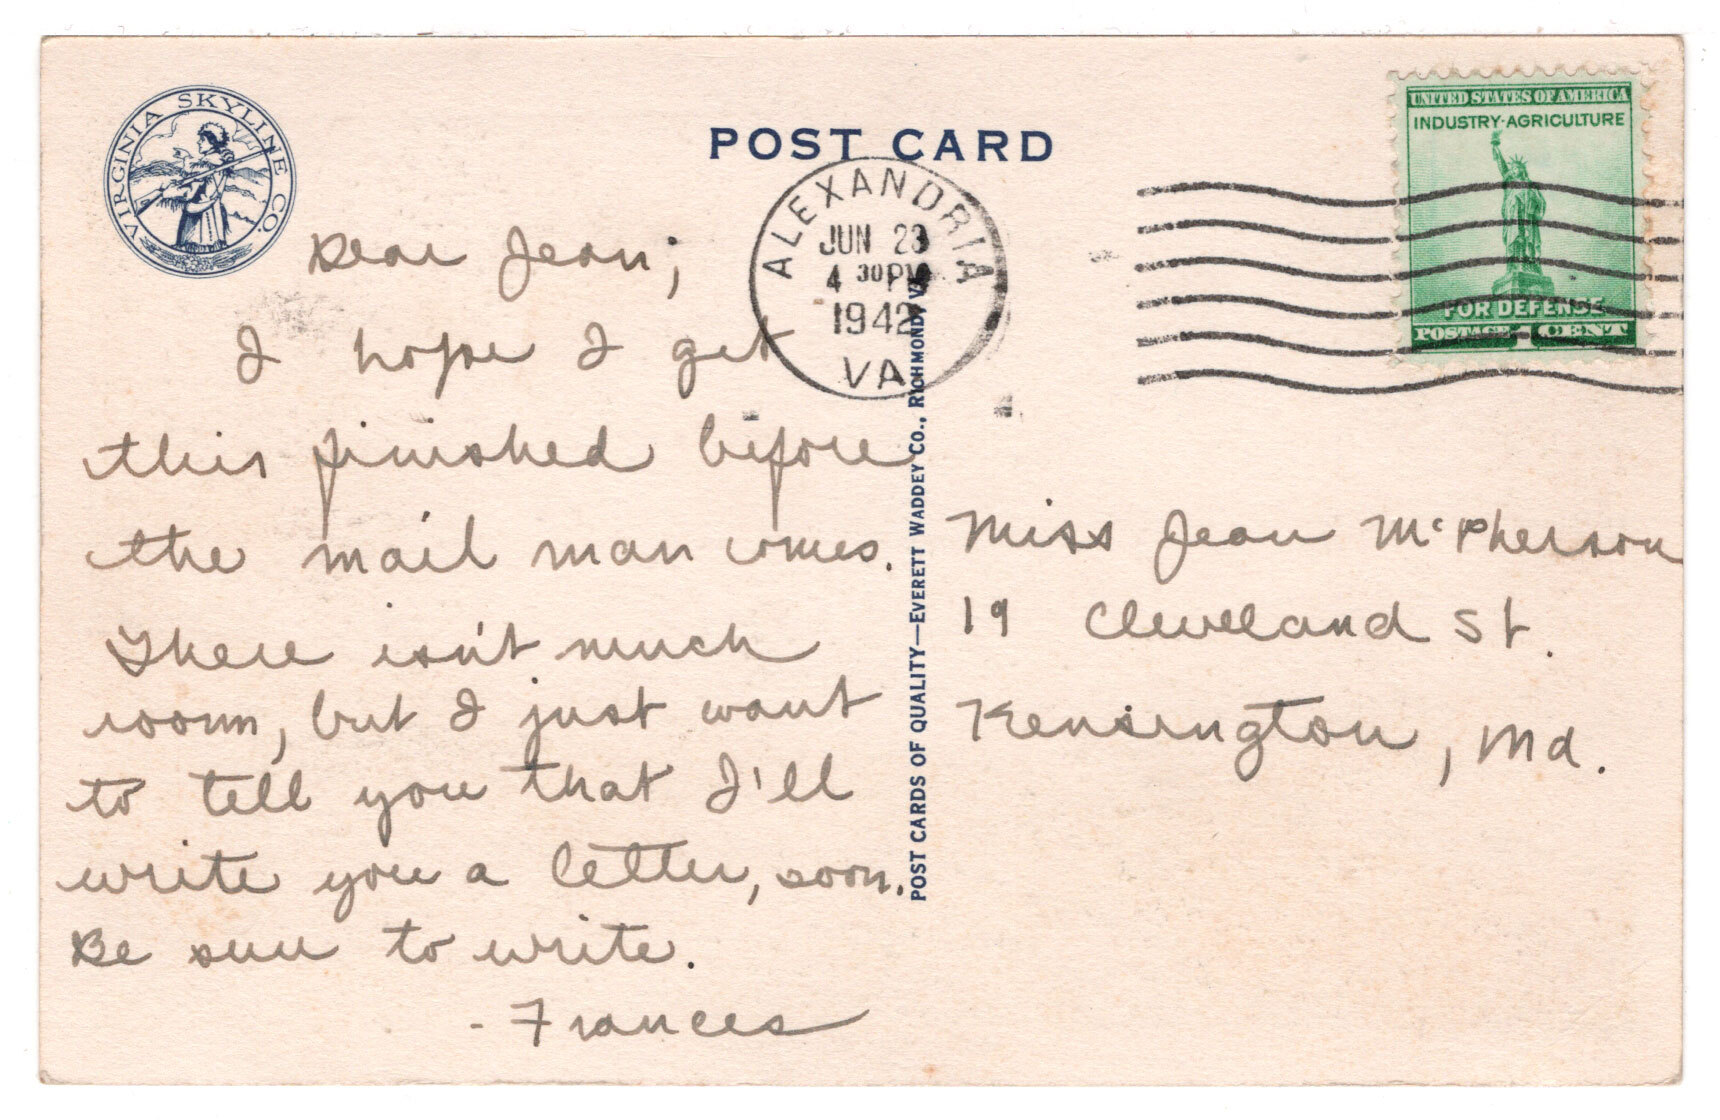 VIRGINIA SKYLINE CO.
POST CARD
UNITED STATES OF AMERICA
INDUSTRY-AGRICULTURE
FOR DEFENSE
POSTAGE 1 CENT
ALEXANDRIA
JUN 23
4 30 PM
1942
VA
Dear Jean;
I hope I get
this finished before
the mail man comes.
There isn't much
room, but I just want
to tell you that I'll
write you a letter, soon.
Be sure to write.
- Frances
POST CARDS OF QUALITY—EVERETT WADDEY CO., RICHMOND, VA.
Miss Jean McPherson
19 Cleveland St.
Kensington, Md.